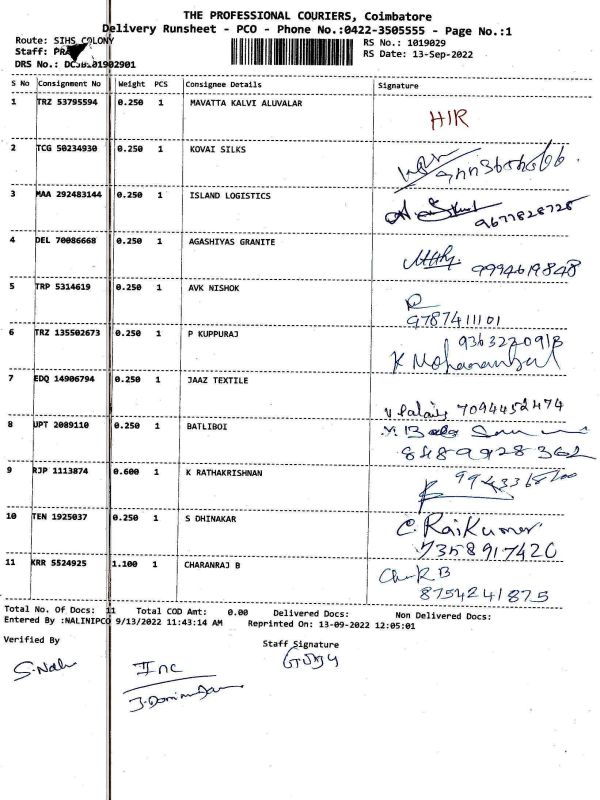 THE PROFESSIONAL COURIERS, Coimbatore
Delivery Runsheet - PCO - Phone No.:0422-3505555 - Page No.:1
Route: SIHS COLONY
RS No.: 1019029
Staff:
RS Date: 13-Sep-2022
DRS No.:
S No Consignment No Weight PCS Consignee Details Signature
1 TRZ 53795594 0.250 1 MAVATTA KALVI ALUVALAR HIR
2 TCG 50234930 0.250 1 KOVAI SILKS
3 MAA 292483144 0.250 1 ISLAND LOGISTICS
9677828728
4 DEL 70086668 0.250 1 AGASHIYAS GRANITE 9994619848
5 TRP 5314619 0.250 1 AVK NISHOK
9787411101
6 TRZ 135502673 0.250 1 P KUPPURAJ 9363220918
K
7 EDQ 14906794 0.250 1 JAAZ TEXTILE
7094452474
8 UPT 2089110 0.250 1 BATLIBOI
8489928362
9 RJP 1113874 0.600 1 K RATHAKRISHNAN
10 TEN 1925037 0.250 1 S DHINAKAR C. RajKumar
7358917420
11 KRR 5524925 1.100 1 CHARANRAJ B
8754241875
Total No. Of Docs: 11 Total COD Amt: 0.00 Delivered Docs: Non Delivered Docs:
Entered By :NALINIPCO 9/13/2022 11:43:14 AM Reprinted On: 13-09-2022 12:05:01
Verified By
Staff Signature